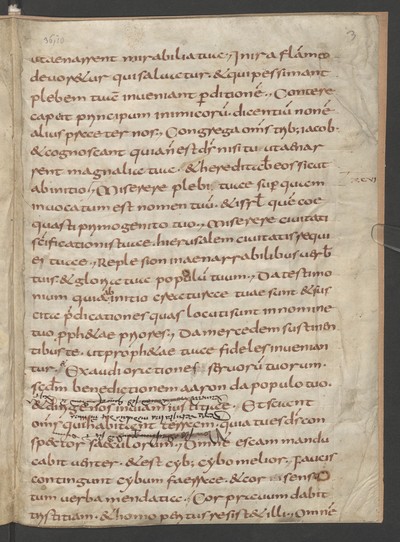 ut aenarrent mirabilia tua, In ira flammę
devoretur qui salvetur, & qui pessimant
plebem tuā inveniant pditionē, Contere
caput principum inimicorū dicentiū non ē
alius preter nos, Congrega oms trib, iacob,
& cognoscant quia n̄ est ds nisi tu ut aenar
rent magnalia tua, & hereditab eos sicut
ab initio, Miserere plebi tuae sup quem
invocatum est nomen tuū, & isrl que coe
quasti primogenito tuo, Miserere civitati
scificationis tuae hierusalem civitati requi
ei tuae, Reple sion inaenarrabilibus verb
tuis & gloria tua populū tuum, Da testimo
nium quia ab initio creaturae tuae sunt & sus
cita pdicationes quas locuti sunt in nomine
tuo pphetae priores, Da mercedem sustinen
tibus te, ut prophetae tuae fideles invenian
tur, Exaudi orationes servorū tuorum,
scdm benedictionem aaron da populo tuo,
& dirige nos in viam iustitiae, Et sciant
oms qui habitant terram, quia tu es ds con
spector saeculorum, Omnē escam mandu
cabit venter, & est cyb, cybo melior, Faucis
contingunt cybum fae & cor sensa
tum verba mendatia, Cor pravum dabit
tristitiam, & homo peritus resistet illi, Omnē